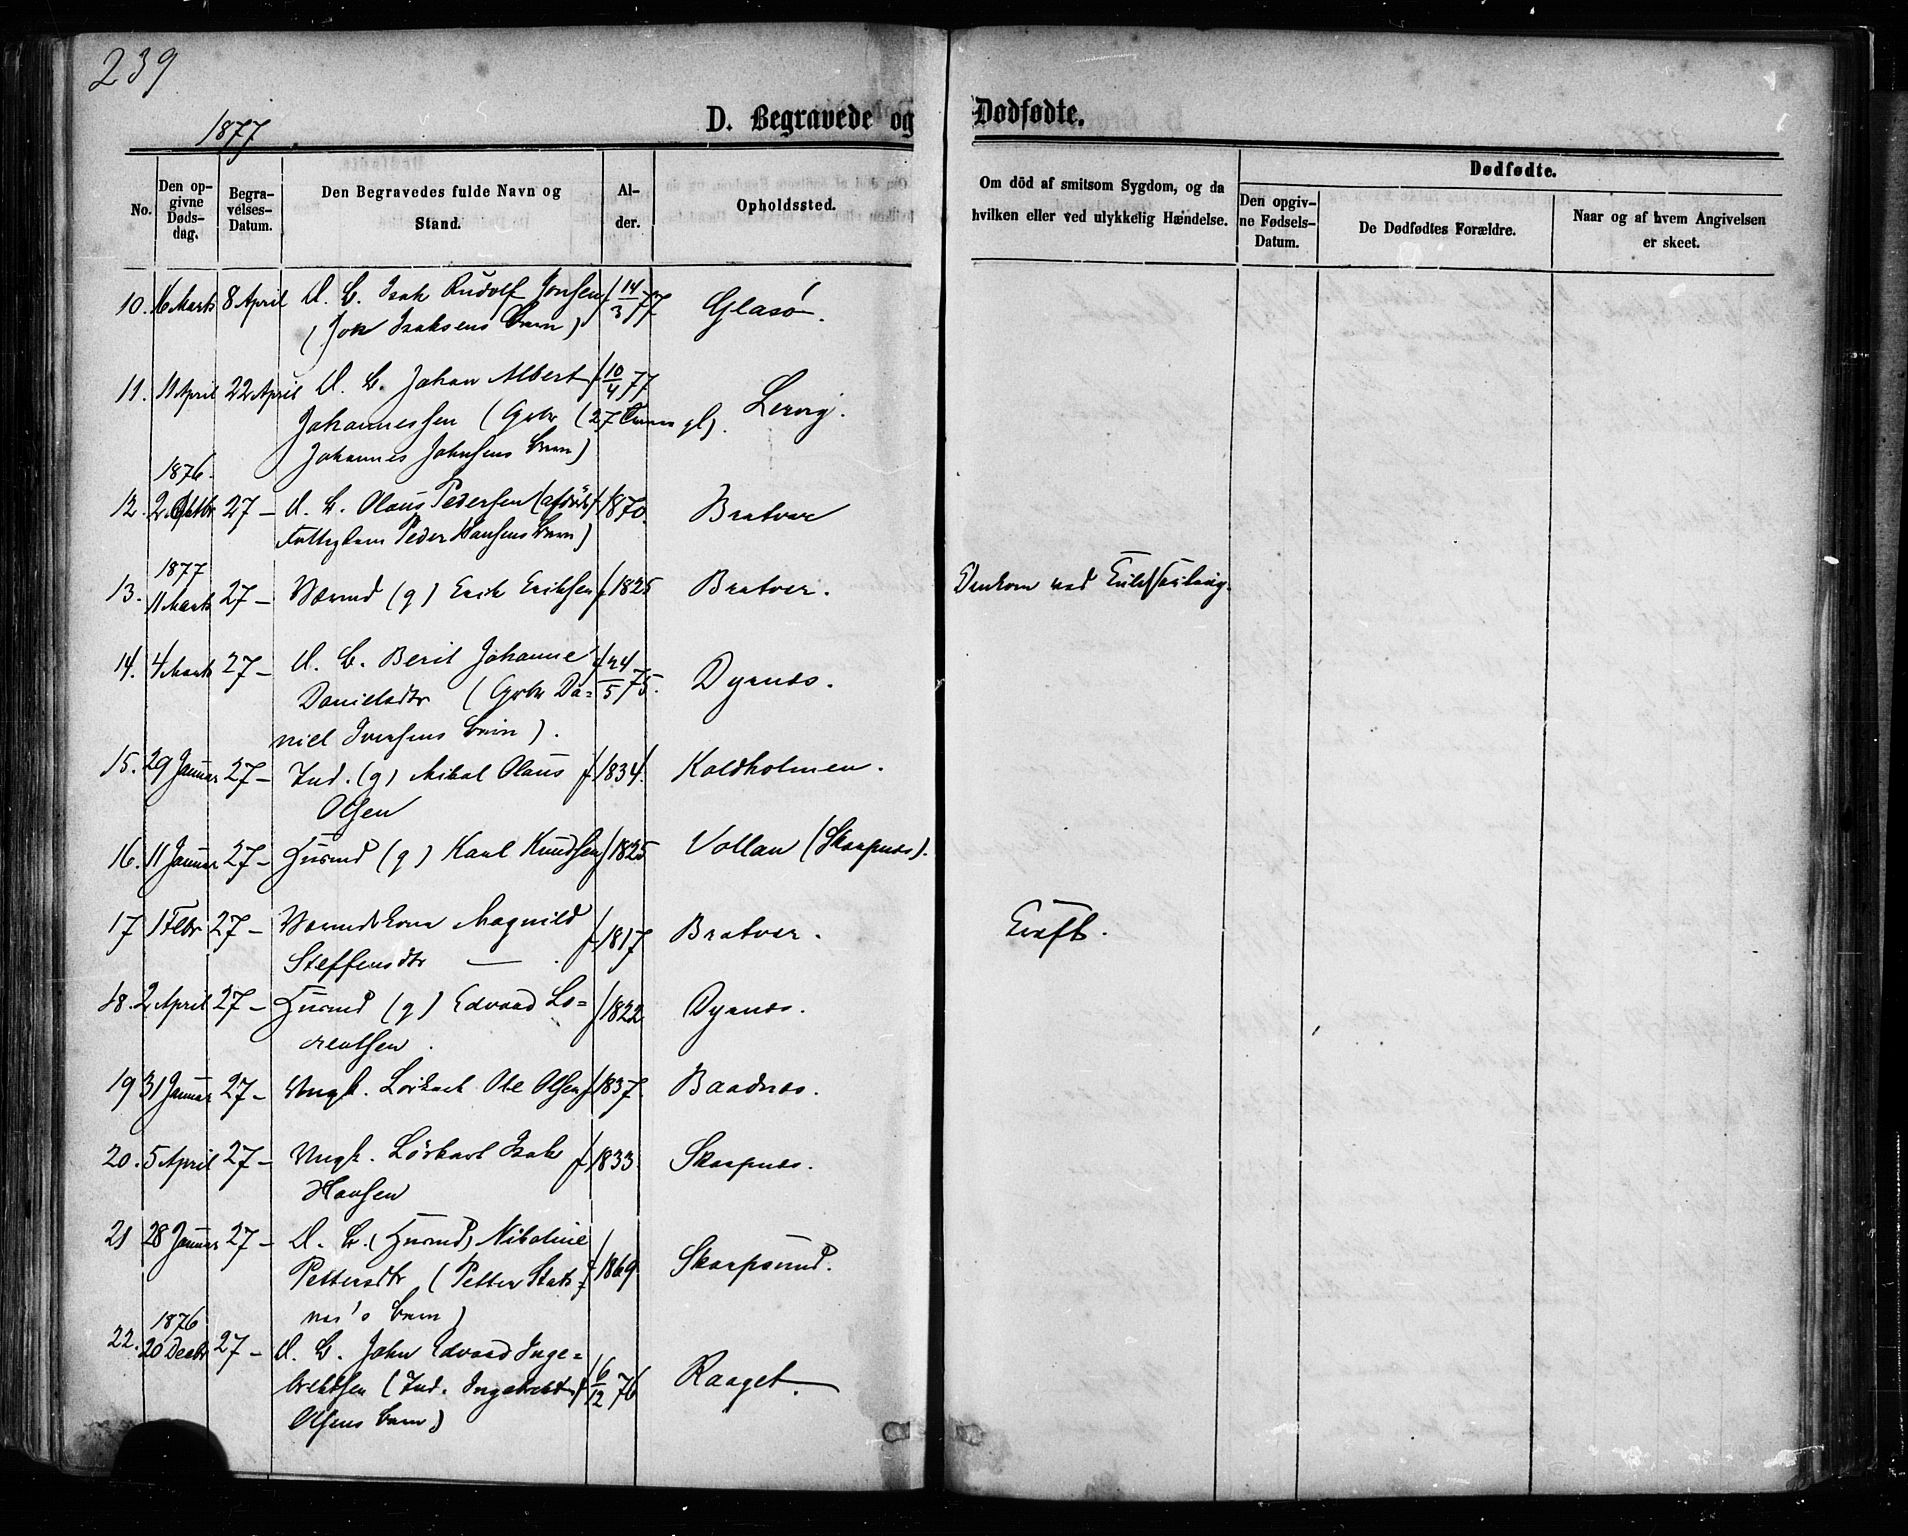 239
1877.
D. Begravede og Dødfødte.
No.
Den opgivne Dødsdag.
Begravelses-Datum.
Den Begravedes fulde Navn og Stand.
Alder.
Opholdssted.
Om död af smitsom Sygdom, og da hvilken eller ved ulykkelig Hændelse.
Dødfødte.
Den opgivne Fødsels-Datum.
De Dødfødtes Forældre.
Naar og af hvem Angivelsen er skeet.
10. 16 Marts 8 April D. B. Isak Rudolf Jonsen f 14/3 77 Glasø.
(Jon Isaksens Barn)
11. 11 April 22 April D. B. Johan Albert f 10/4 77
Johannessen (Gbr (27 Timer gl). Lervig.
Johannes Johnsens Barn)
1876.
12. 2 Octbr 27 – D. B. Olaus Pedersen (afdøde f 1870. Bratvær
Fattiglem Peder Hansens Barn)
1877
13. 11 Marts 27 – Vərmd (g) Erik Eriksen f 1825 Bratvær. Omkom ved Kuldseiling.
14. 4 Marts 27 – D. B. Berit Johanne f 24/5 75.
Danielsdtr (Gbr Da= Dyrnes.
niel Iversens Barn).
15. 29 Januar 27 – Ind. (g) Mikal Olaus f 1834. Koldholmen.
Olsen
16. 11 Januar 27 – Husmd (g) Karl Knudsen f 1825 Vollan (Skarpnes).
17 1 Febr 27 – Vərmdskone Magnild
Steffensdtr — . f 1817 Bratvær. Kræft.
18. 2 April 27 – Husmd (g) Edvard Lo= f 1822 Dyrnes.
rentsen.
19 31 Januar 27 – Ungk. Löskarl Ole Olsen f 1837. Baadnes.
20. 5 April 27 – Ungk. Löskarl Isak f 1833. Skarpnes.
Hansen
21 28 Januar 27 – D. B. (Husmd) Nikoline
Pettersdtr (Petter Stak= f 1869. Skarpsund.
nes's Barn)
1876
22. 20 Decbr 27 – D. B. John Edvard Inge=
brektsen (Ind. Ingebrekt f 6/12 76 Raaget.
Olsens Barn)